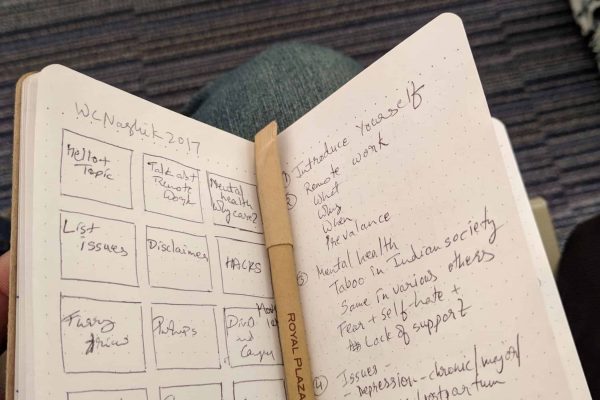 WC Nashik 2017
Hello +
Topic
Talk abt
Remote
Work
Mental
health
Why care?
List
issues
Disclaimer
HACKS
Furry
Pinups
ROYAL PLAZA
1) Introduce yourself
2) Remote work
What
Why
When
Prevalance
3) Mental health
Taboo in Indian society
Same in various others
Fear + self-hate +
Lack of support
4) Issues -
- Depression - chronic/major/
postpartum